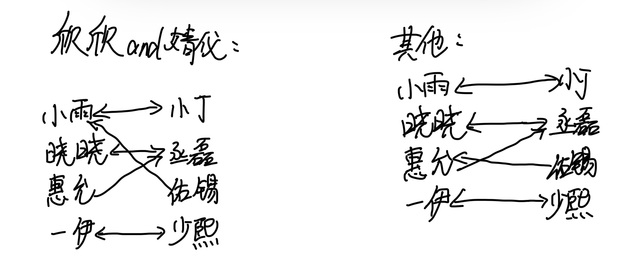 欣欣and婧仪：
小雨 小丁
晓晓 丞磊
惠允 佑锡
一伊 少熙
其他：
小雨 小丁
晓晓 丞磊
惠允 佑锡
一伊 少熙